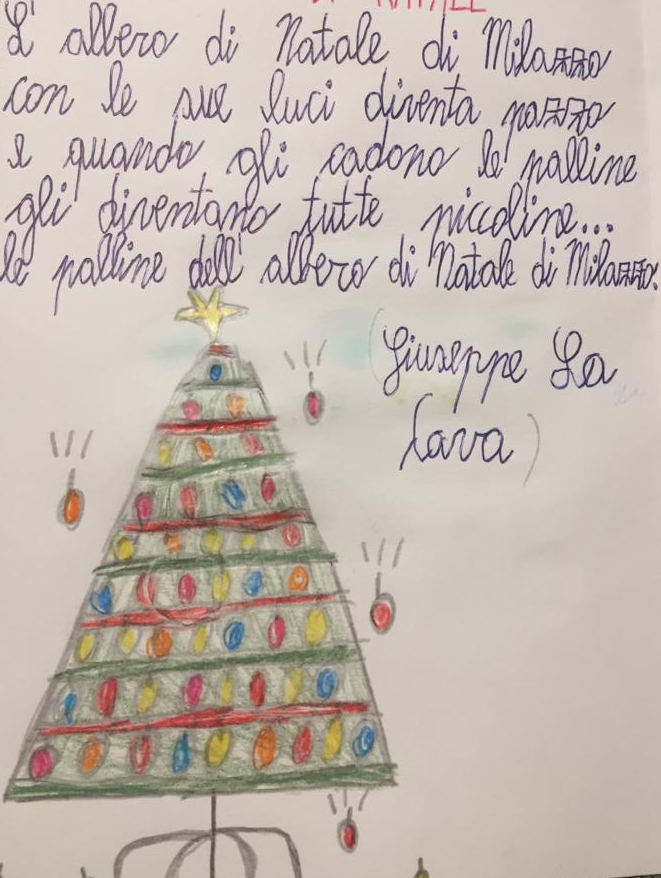 DI NATALE
L'albero di Natale di Milazzo
con le sue luci diventa pazzo
e quando gli cadono le palline
gli diventano tutte piccoline...
le palline dell'albero di Natale di Milazzo.
(Giuseppe La
Cava)